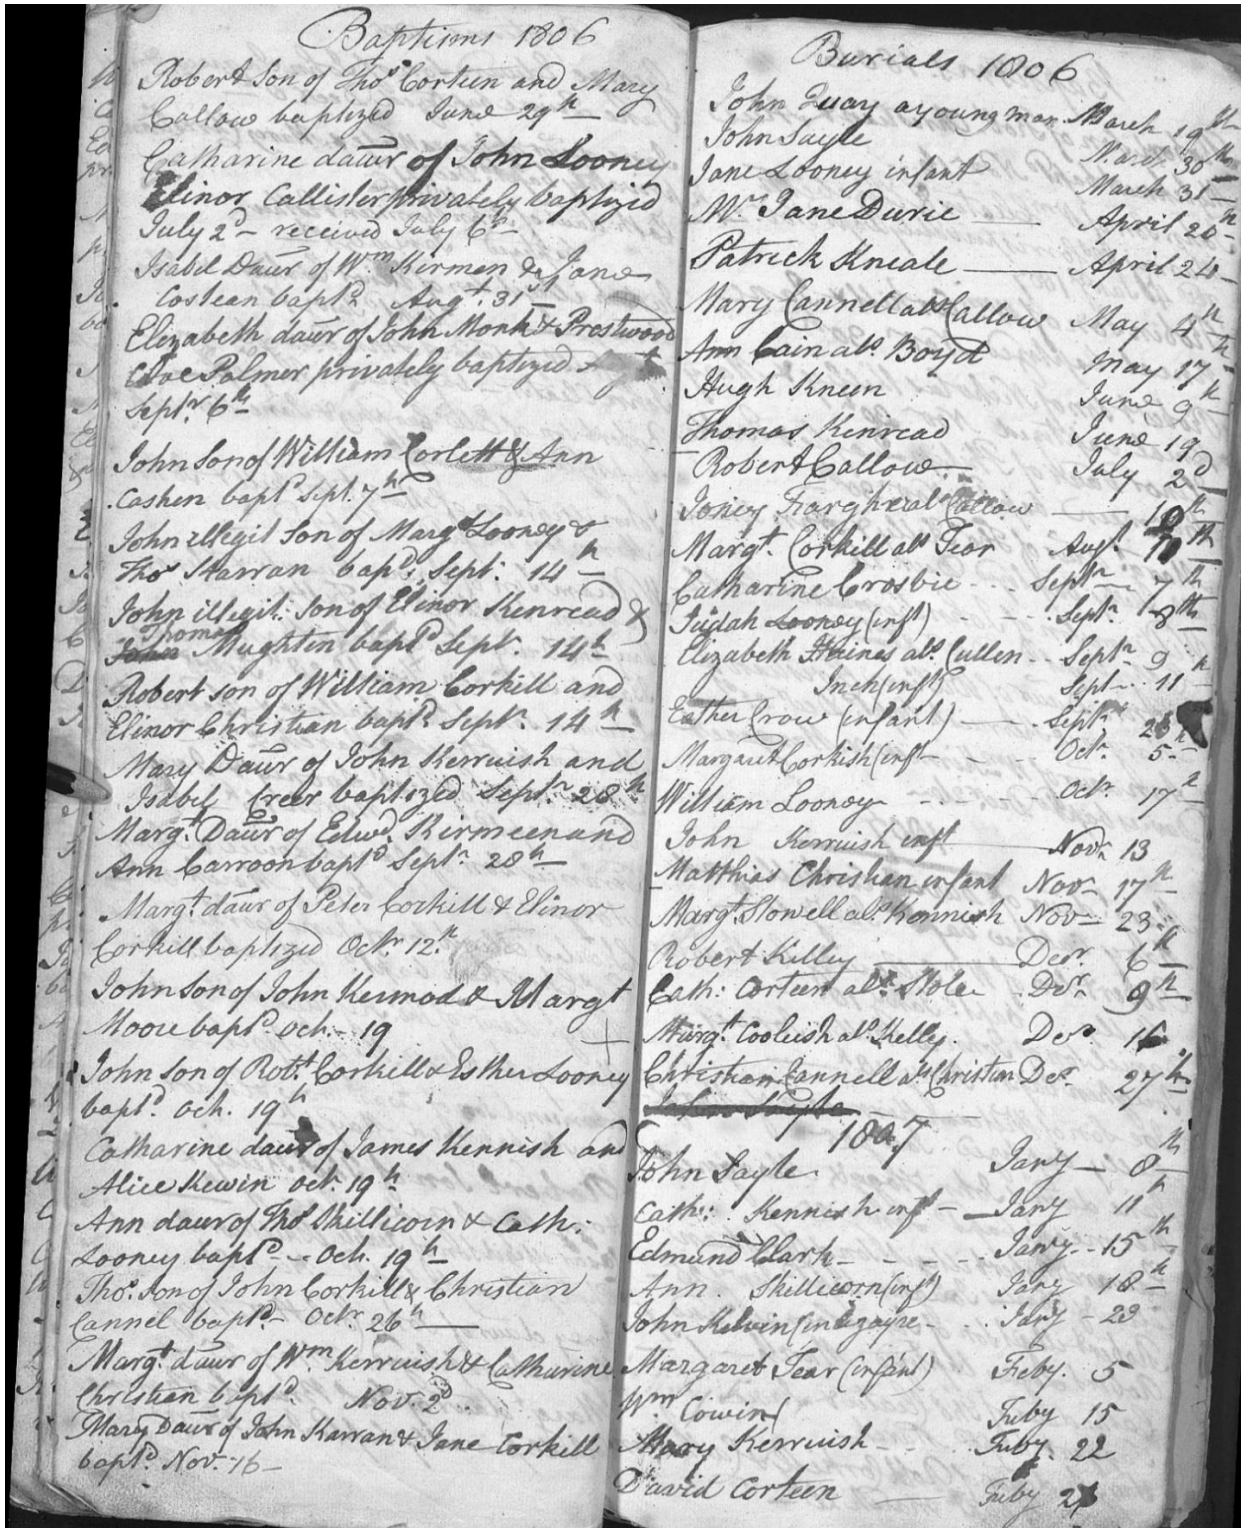 Baptisms 1806
Robert Son of Thos Corteen and Mary
Callow baptized June 29th
Catharine daur of John Looney
Elinor Callister privately baptizid
July 2d - received July 6th
Isabel Daur of Wm Kirmen & Jane
Costean bapt.d Augt. 31st
Elizabeth daur of John Monk & Prestwood
Palmer privately baptized
Septr 6th
John Son of William Corlett & Ann
Cashen bapt.d Sept. 7th
John illegit Son of Margt Looney &
Thos Harran bap.d Sept. 14th
John illegit: Son of Elinor Kenread &
Thomas
John Mughten bapt.d Sept. 14th
Robert son of William Corkill and
Elinor Christian bapt.d Sept. 14th
Mary Daur of John Kerruish and
Isabel Creer baptized Septr 28th
Margt. Daur of Edwd. Kirmeen and
Ann Carroon bapt.d Septr 28th
Margt. daur of Peter Corkill & Elinor
Corkill baptized Octr. 12th
John Son of John Kermod & Margt
Moore bapt.d Oct. 19
John Son of Robt. Corkill & Esther Looney
bapt.d Oct. 19th
Catharine daur of James Kennish and
Alice Kewin Oct. 19th
Ann daur of Thos Skillicorn & Cath:
Looney bapt.d - Oct. 19th
Thos. Son of John Corkill & Christian
Cannel bapt.d - Octr 26th
Margt. daur of Wm. Kerruish & Catharine
Christian bapt.d Nov. 2d
Mary Daur of John Karran & Jane Corkill
bapt.d Nov. 16 -
Burials 1806
John Quay a young man March 19th
John Sayle March 30th
Jane Looney infant March 31
Mrs. Jane Durie April 20th
Patrick Kneale April 24
Mary Cannell als Callow May 4th
Ann Cain als. Boyd May 17th
Hugh Kneen June 9th
Thomas Kinread June 19
Robert Callow July 2d
Joney Fargher als Callow 10th
Margt. Corkill als Tear Augt. 11th
Catharine Crosbie Septr 7th
Judah Looney (inft) Septr. 8th
Elizabeth Haines als. Cullen Septr 9
Inch (inft) Sept 11th
Esther Crow (infant) Septr
Margaret Corkish (inft Octr. 5th
William Looney Octr 17th
John Kerruish inft Novr 13
Matthias Christian infant Novr 17th
Margt. Stowell als Kennish Nov 23
Robert Killey Decr. 6th
Cath: Corteen als. Stole Decr 9th
Margt Cooleish als. Kelly Decr 16
Christian Cannell als Christian Decr. 27th
John Sayle
1807
John Sayle Jany 8th
Cath: Kennish inft Jany 11th
Edmund Clark Jany 15th
Ann Skillicorn (inft) Jany 18th
John Kelvin Jany 23
Margaret Tear (infant) Feby. 5
Wm Cowin Feby 15
Mary Kerruish Feby. 22
David Corteen Feby